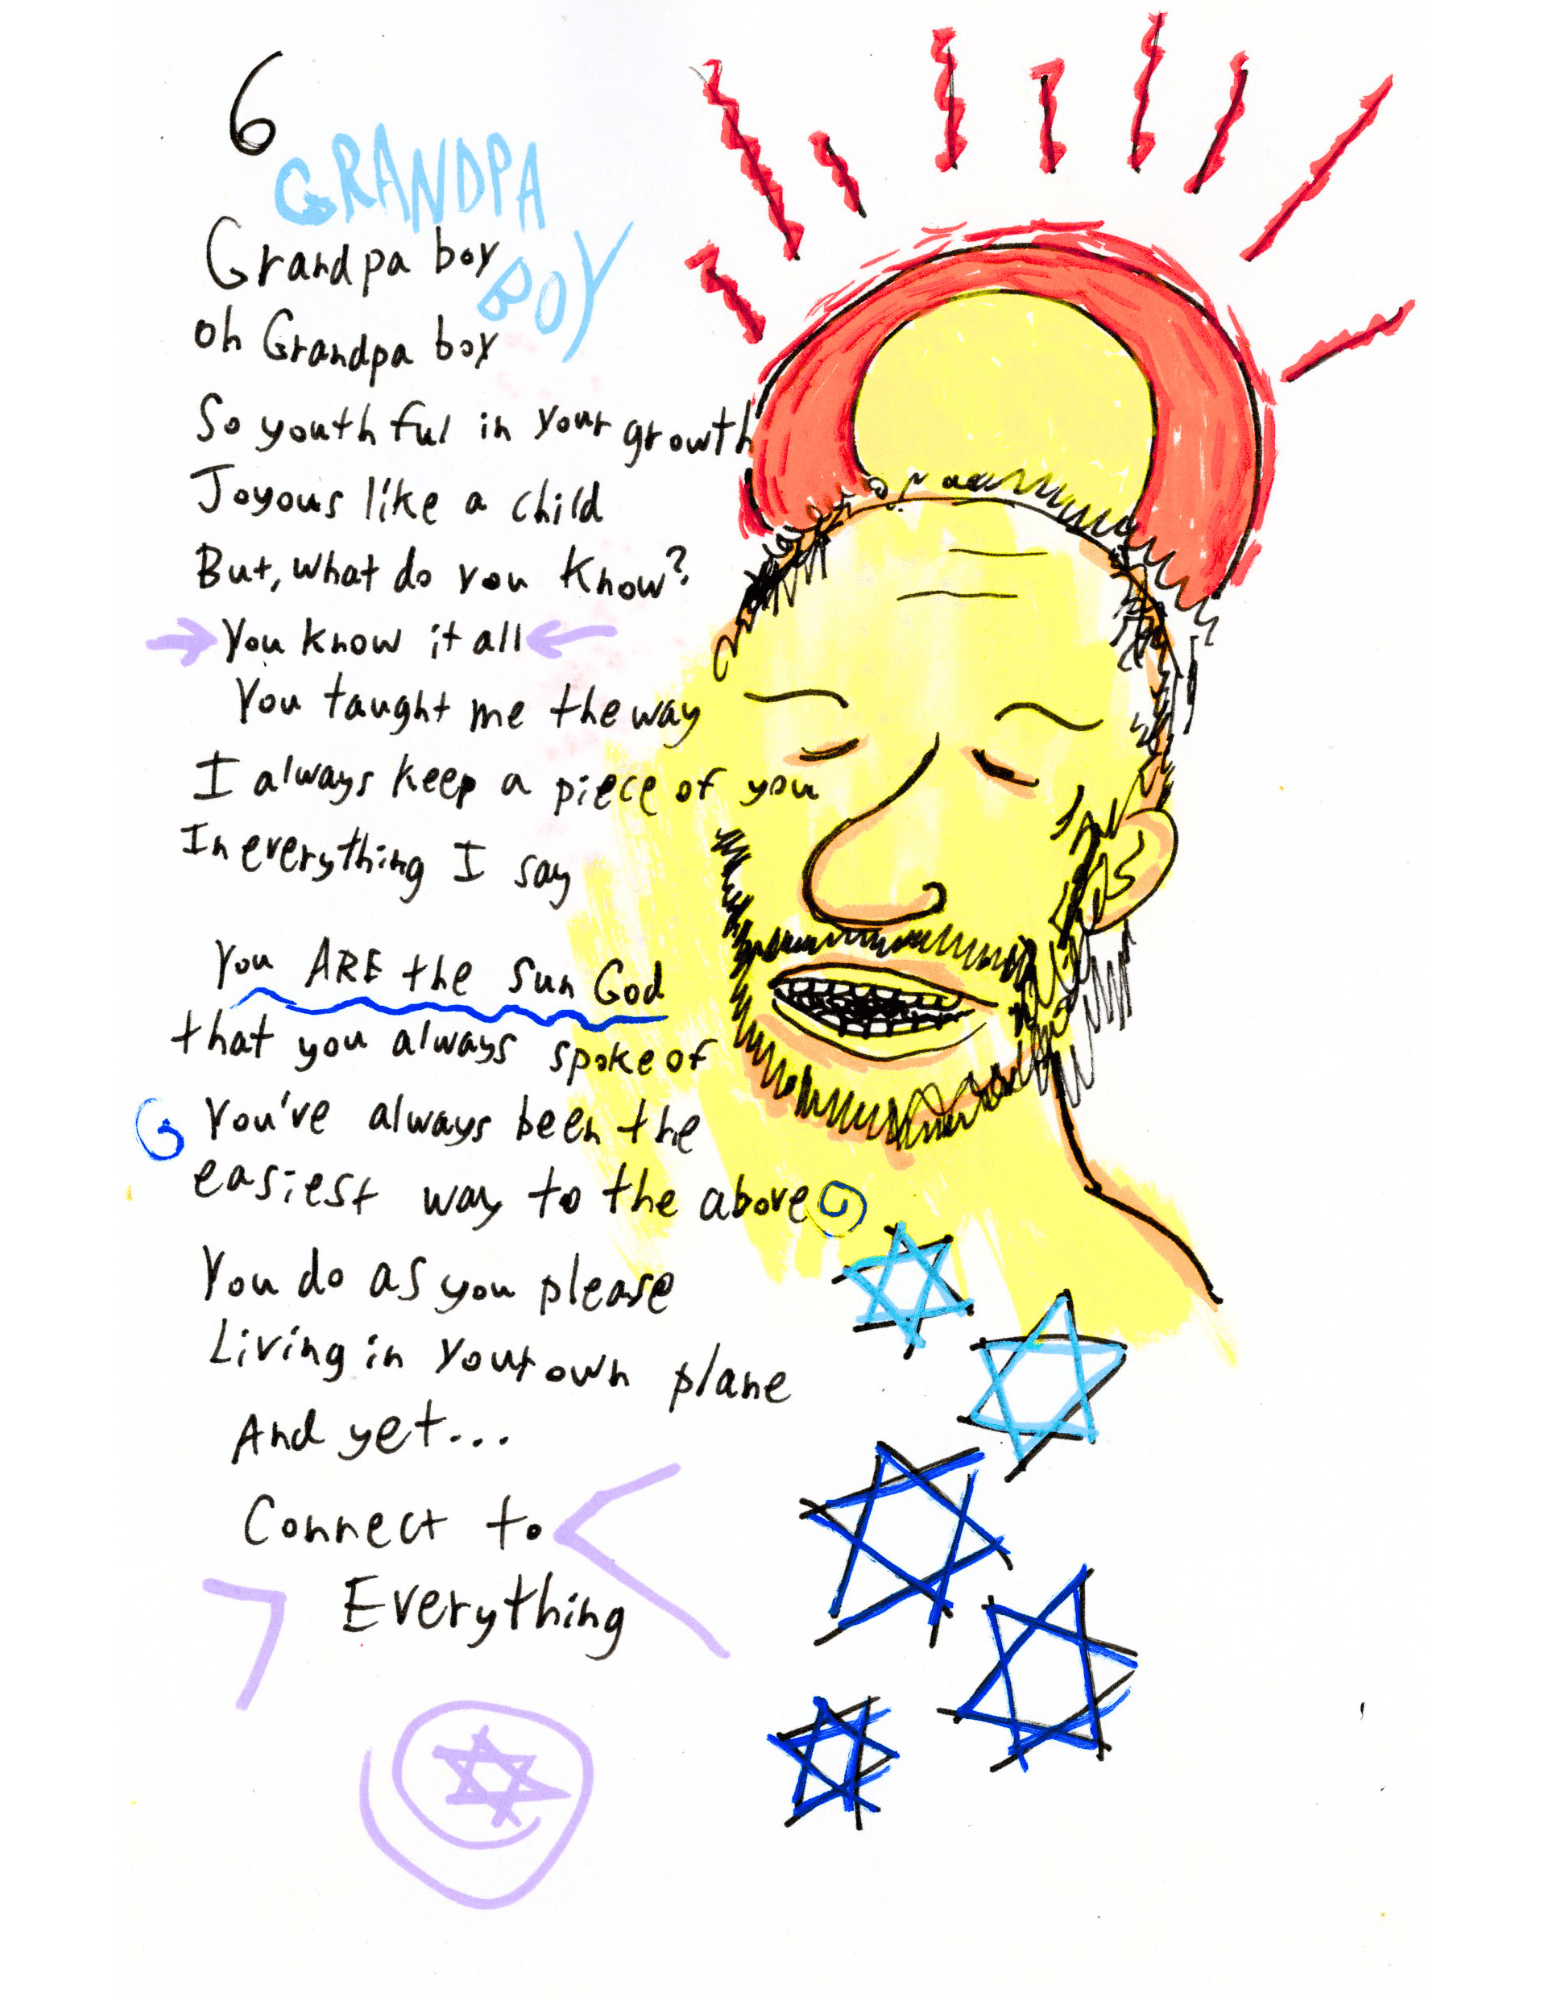 6
GRANDPA
BOY
Grandpa boy
oh Grandpa boy
So youthful in your growth
Joyous like a child
But, what do you know?
You know it all
You taught me the way
I always keep a piece of you
In everything I say
You ARE the Sun God
that you always spoke of
You've always been the
easiest way to the above
You do as you please
Living in your own plane
And yet...
Connect to
Everything